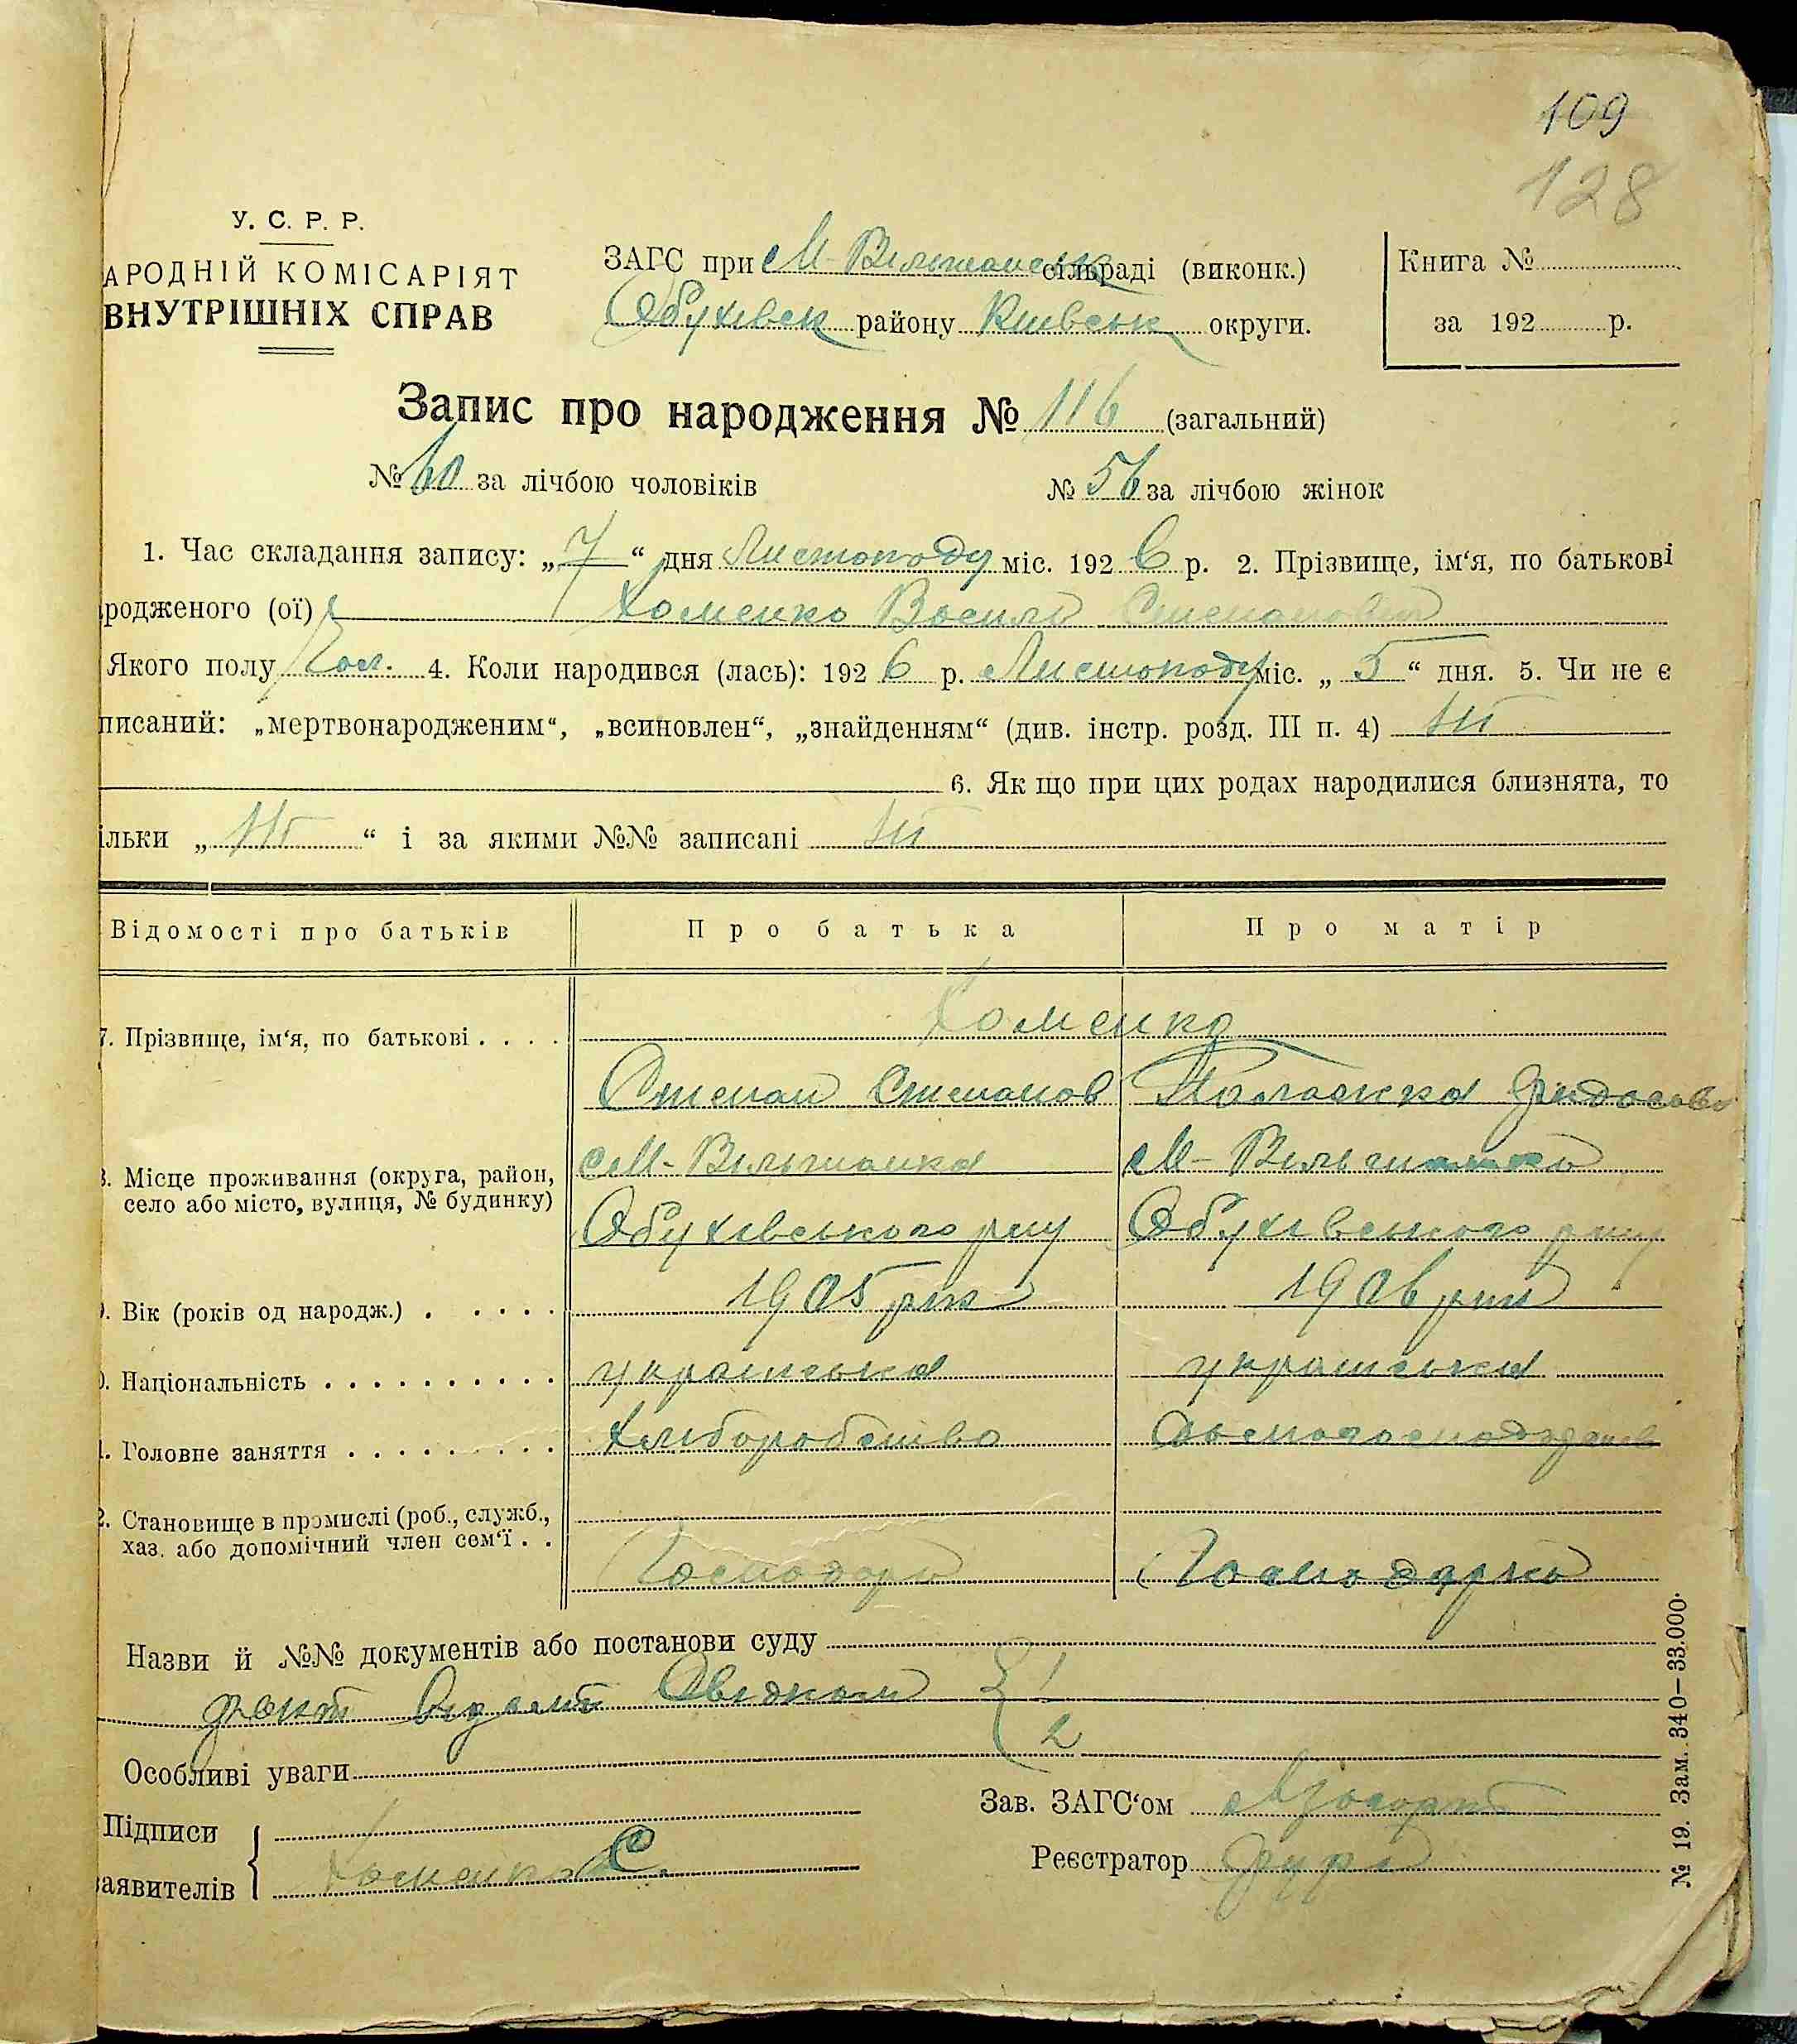 109
128
У. С. Р. Р.
АРОДНІЙ КОМІСАРІЯТ
ВНУТРІШНІХ СПРАВ
ЗАГС при М-Вільшанськ сільраді (виконк.)
Обухівськ району Київськ округи.
Книга №
за 192 р.
Запис про народження № 116 (загальний)
№ 60 за лічбою чоловіків № 56 за лічбою жінок
1. Час складання запису: „7“ дня Листопаду міс. 1926 р. 2. Прізвище, ім‘я, по батькові
родженого (ої) Хоменко Василь Степанович
Якого полу Чол. 4. Коли народився (лась): 1926 р. Листопаду міс. „5“ дня. 5. Чи не є
писаний: „мертвонародженим“, „всиновлен“, „знайденням“ (див. інстр. розд. III п. 4) ні
6. Як що при цих родах народилися близнята, то
ільки „ні“ і за якими №№ записані ні
Відомості про батьків Про батька Про матір
7. Прізвище, ім‘я, по батькові Хоменко
Степан Степанов Палажка
8. Місце проживання (округа, район, село або місто, вулиця, № будинку) М-Вільшанка М-Вільшанка
Обухівського р-ну Обухівського р-ну
Вік (років од народж.) 1905 рік 1906 рік
Національність українська українська
Головне заняття Хліборобство
Становище в промислі (роб., служб.,
хаз. або допомічний член сем‘ї Господарь Господарка
Назви й №№ документів або постанови суду
Свідком { 1
2
Особливі уваги
Підписи
аявителів { Хоменко С.
Зав. ЗАГС‘ом
Реєстратор
№ 19. Зам. 340—33.000.